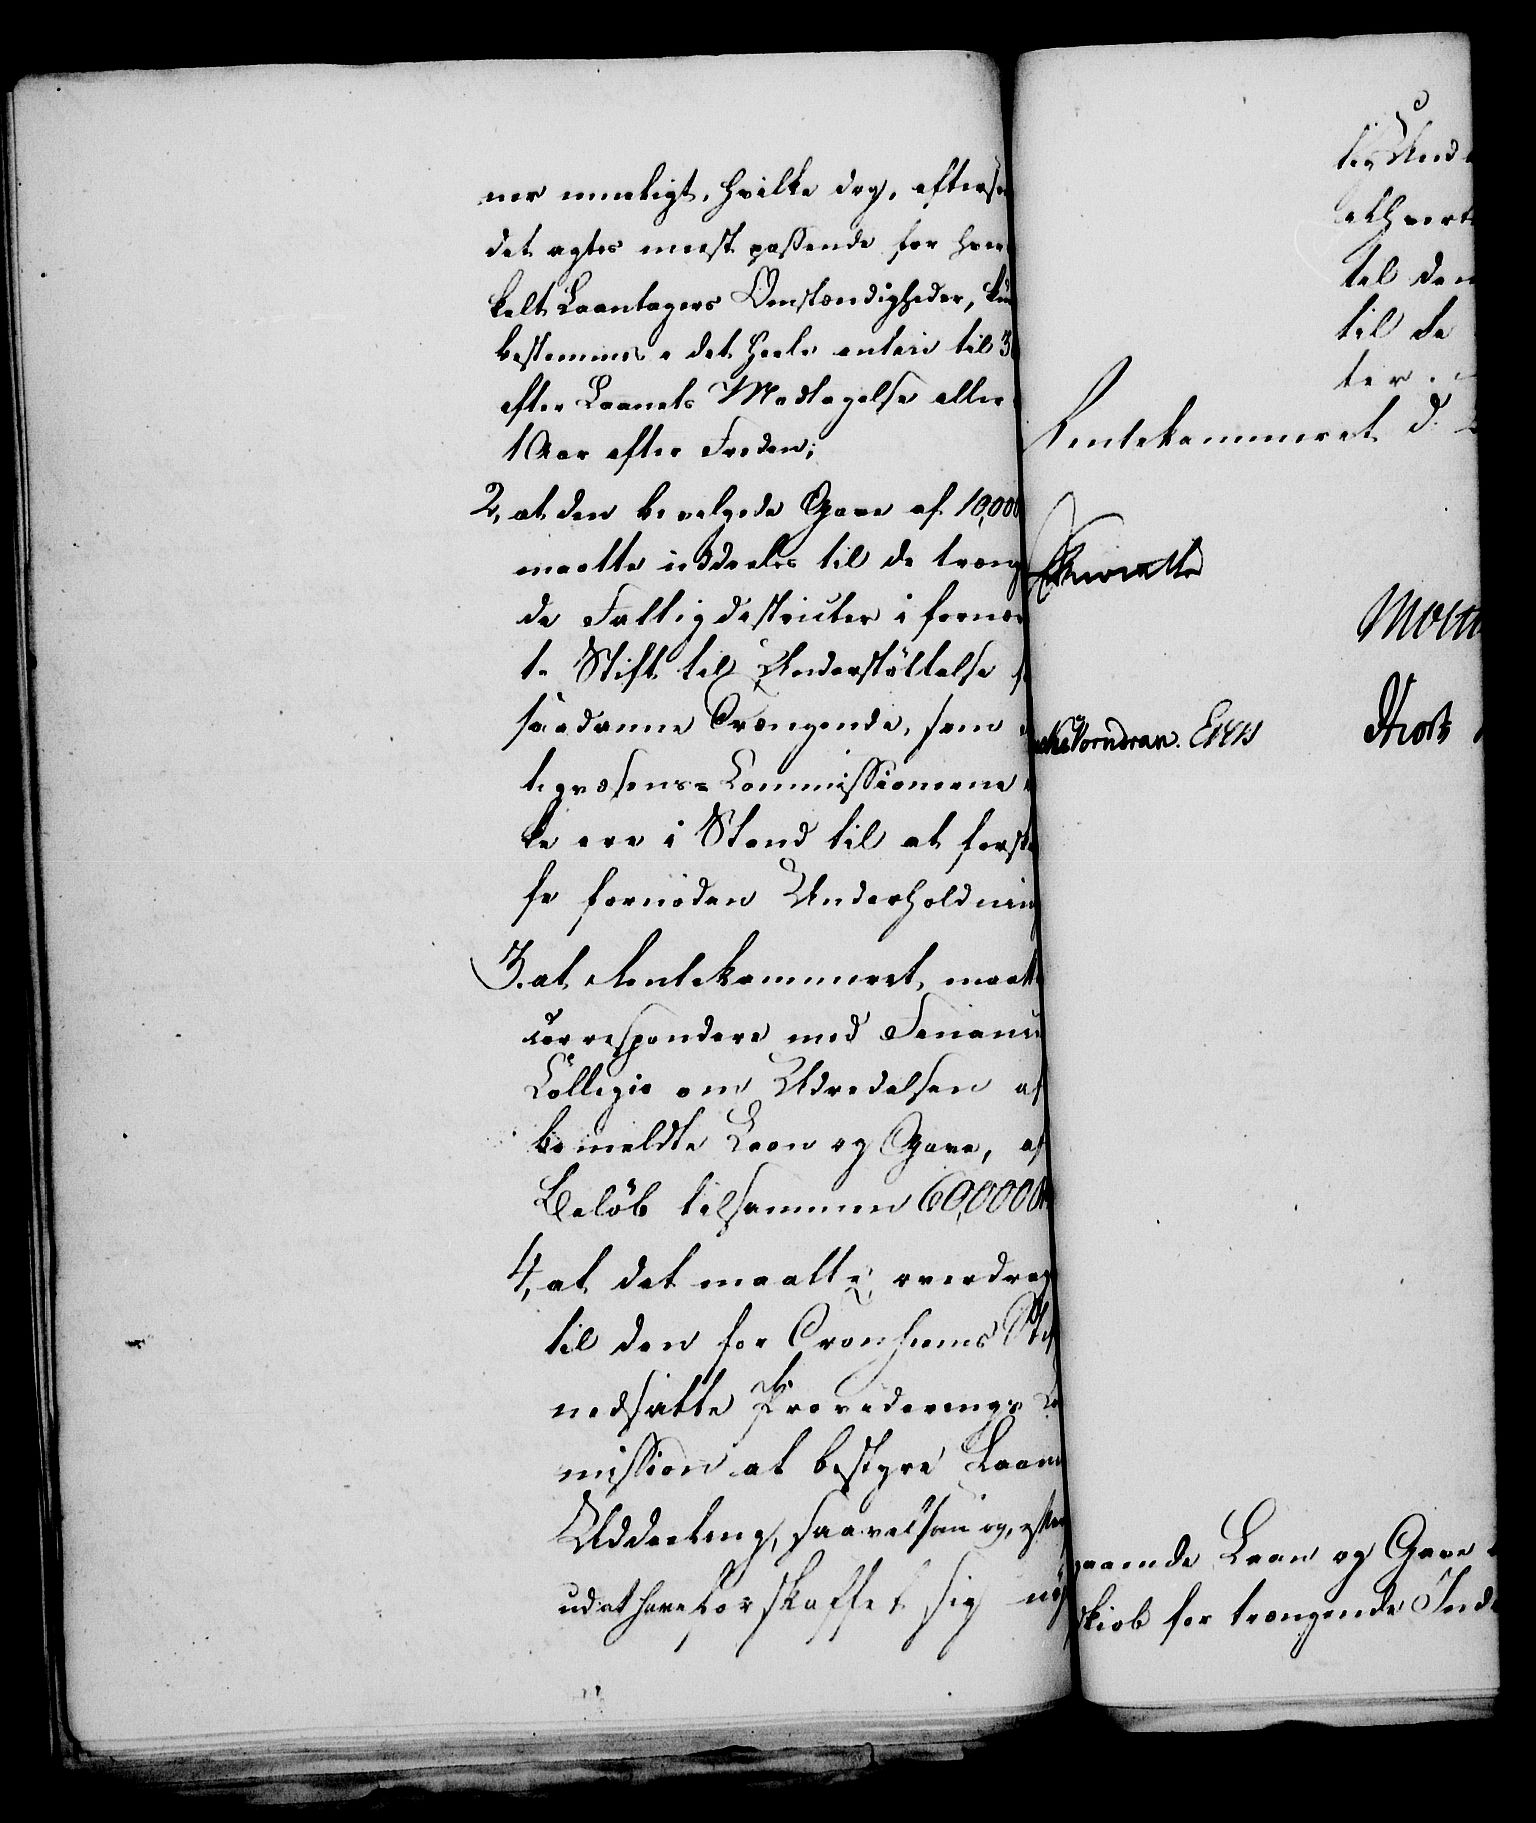 ner mueligt, hvilke dog, efters
det agtes meest passende for hver
kelt Laantagers Omstændigheder, kun
bestemmes i det heele enten til 3
efter Laanets Modtagelse eller
1 Aar efter Freden;
2, at den bevilgede Gave af 10,000
maatte uddeeles til de træng
de Fattigdistricter i fornæv
te Stift til Understøttelse f
saadanne Trængende, som
tigvæsens-Commissionerne
ke ere i Stand til at forska
fe fornøden Underholdning
3. at Rentekammeret maatte
correspondere med Finants
Collegio om Udredelsen af
bemeldte Laan og Gave, af
Beløb tilsammen 60,000
4, at det maatte overdrag
til den for Tronhiems Stif
nedsatte Provideerings Co
mission at bestyre Laane
Uddeeling, saavelsom og, efter
ud at have forskaffet sig nøj
ter Und
ethvert
til den
til de
ter.
Rentekammeret d. 2
Vorndran.
gaaende Laan og Gave
skiøb for trængende Ind